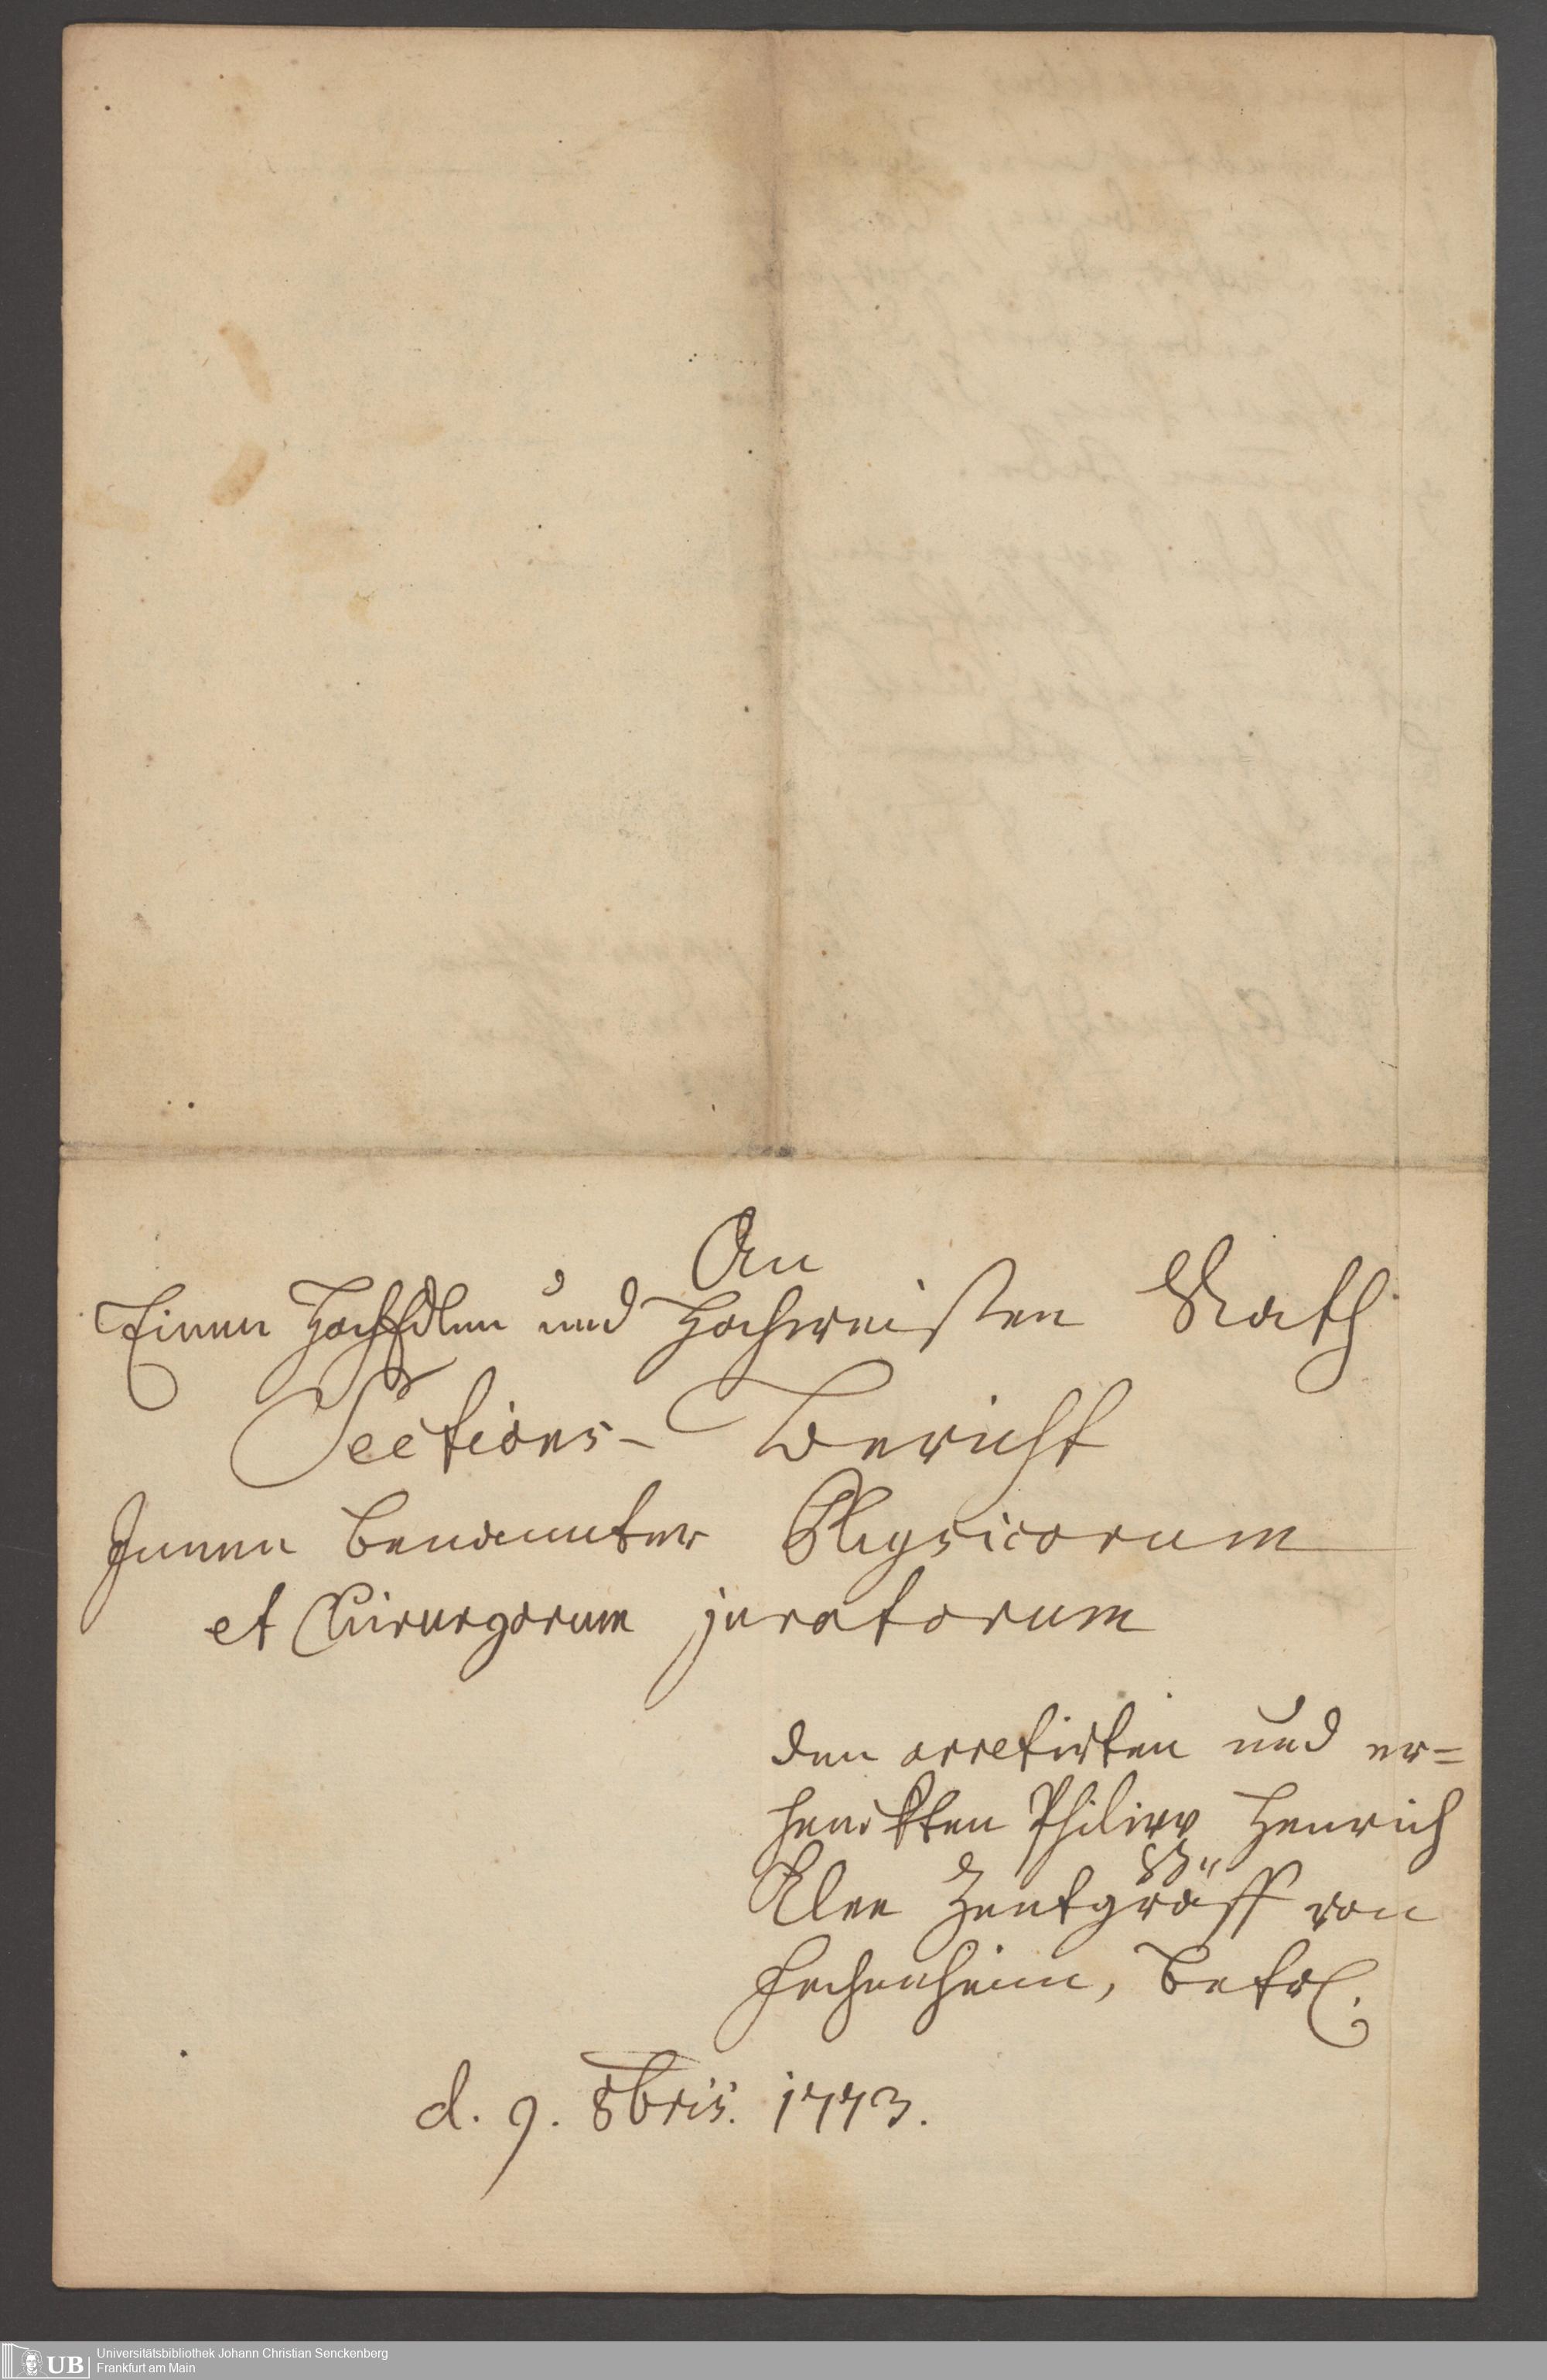 An
Einen HochEdlen und Hochweisen Rath
Sections- Bericht
Innen benannter Physicorum
et Chirurgorum juratorum
den arretirten und er=
henckten Philipp Henrich
Zentgräff von
Fechenheim, betrl.
d. 9. 8bris. 1773.
UB
Universitätsbibliothek Johann Christian Senckenberg
Frankfurt am Main